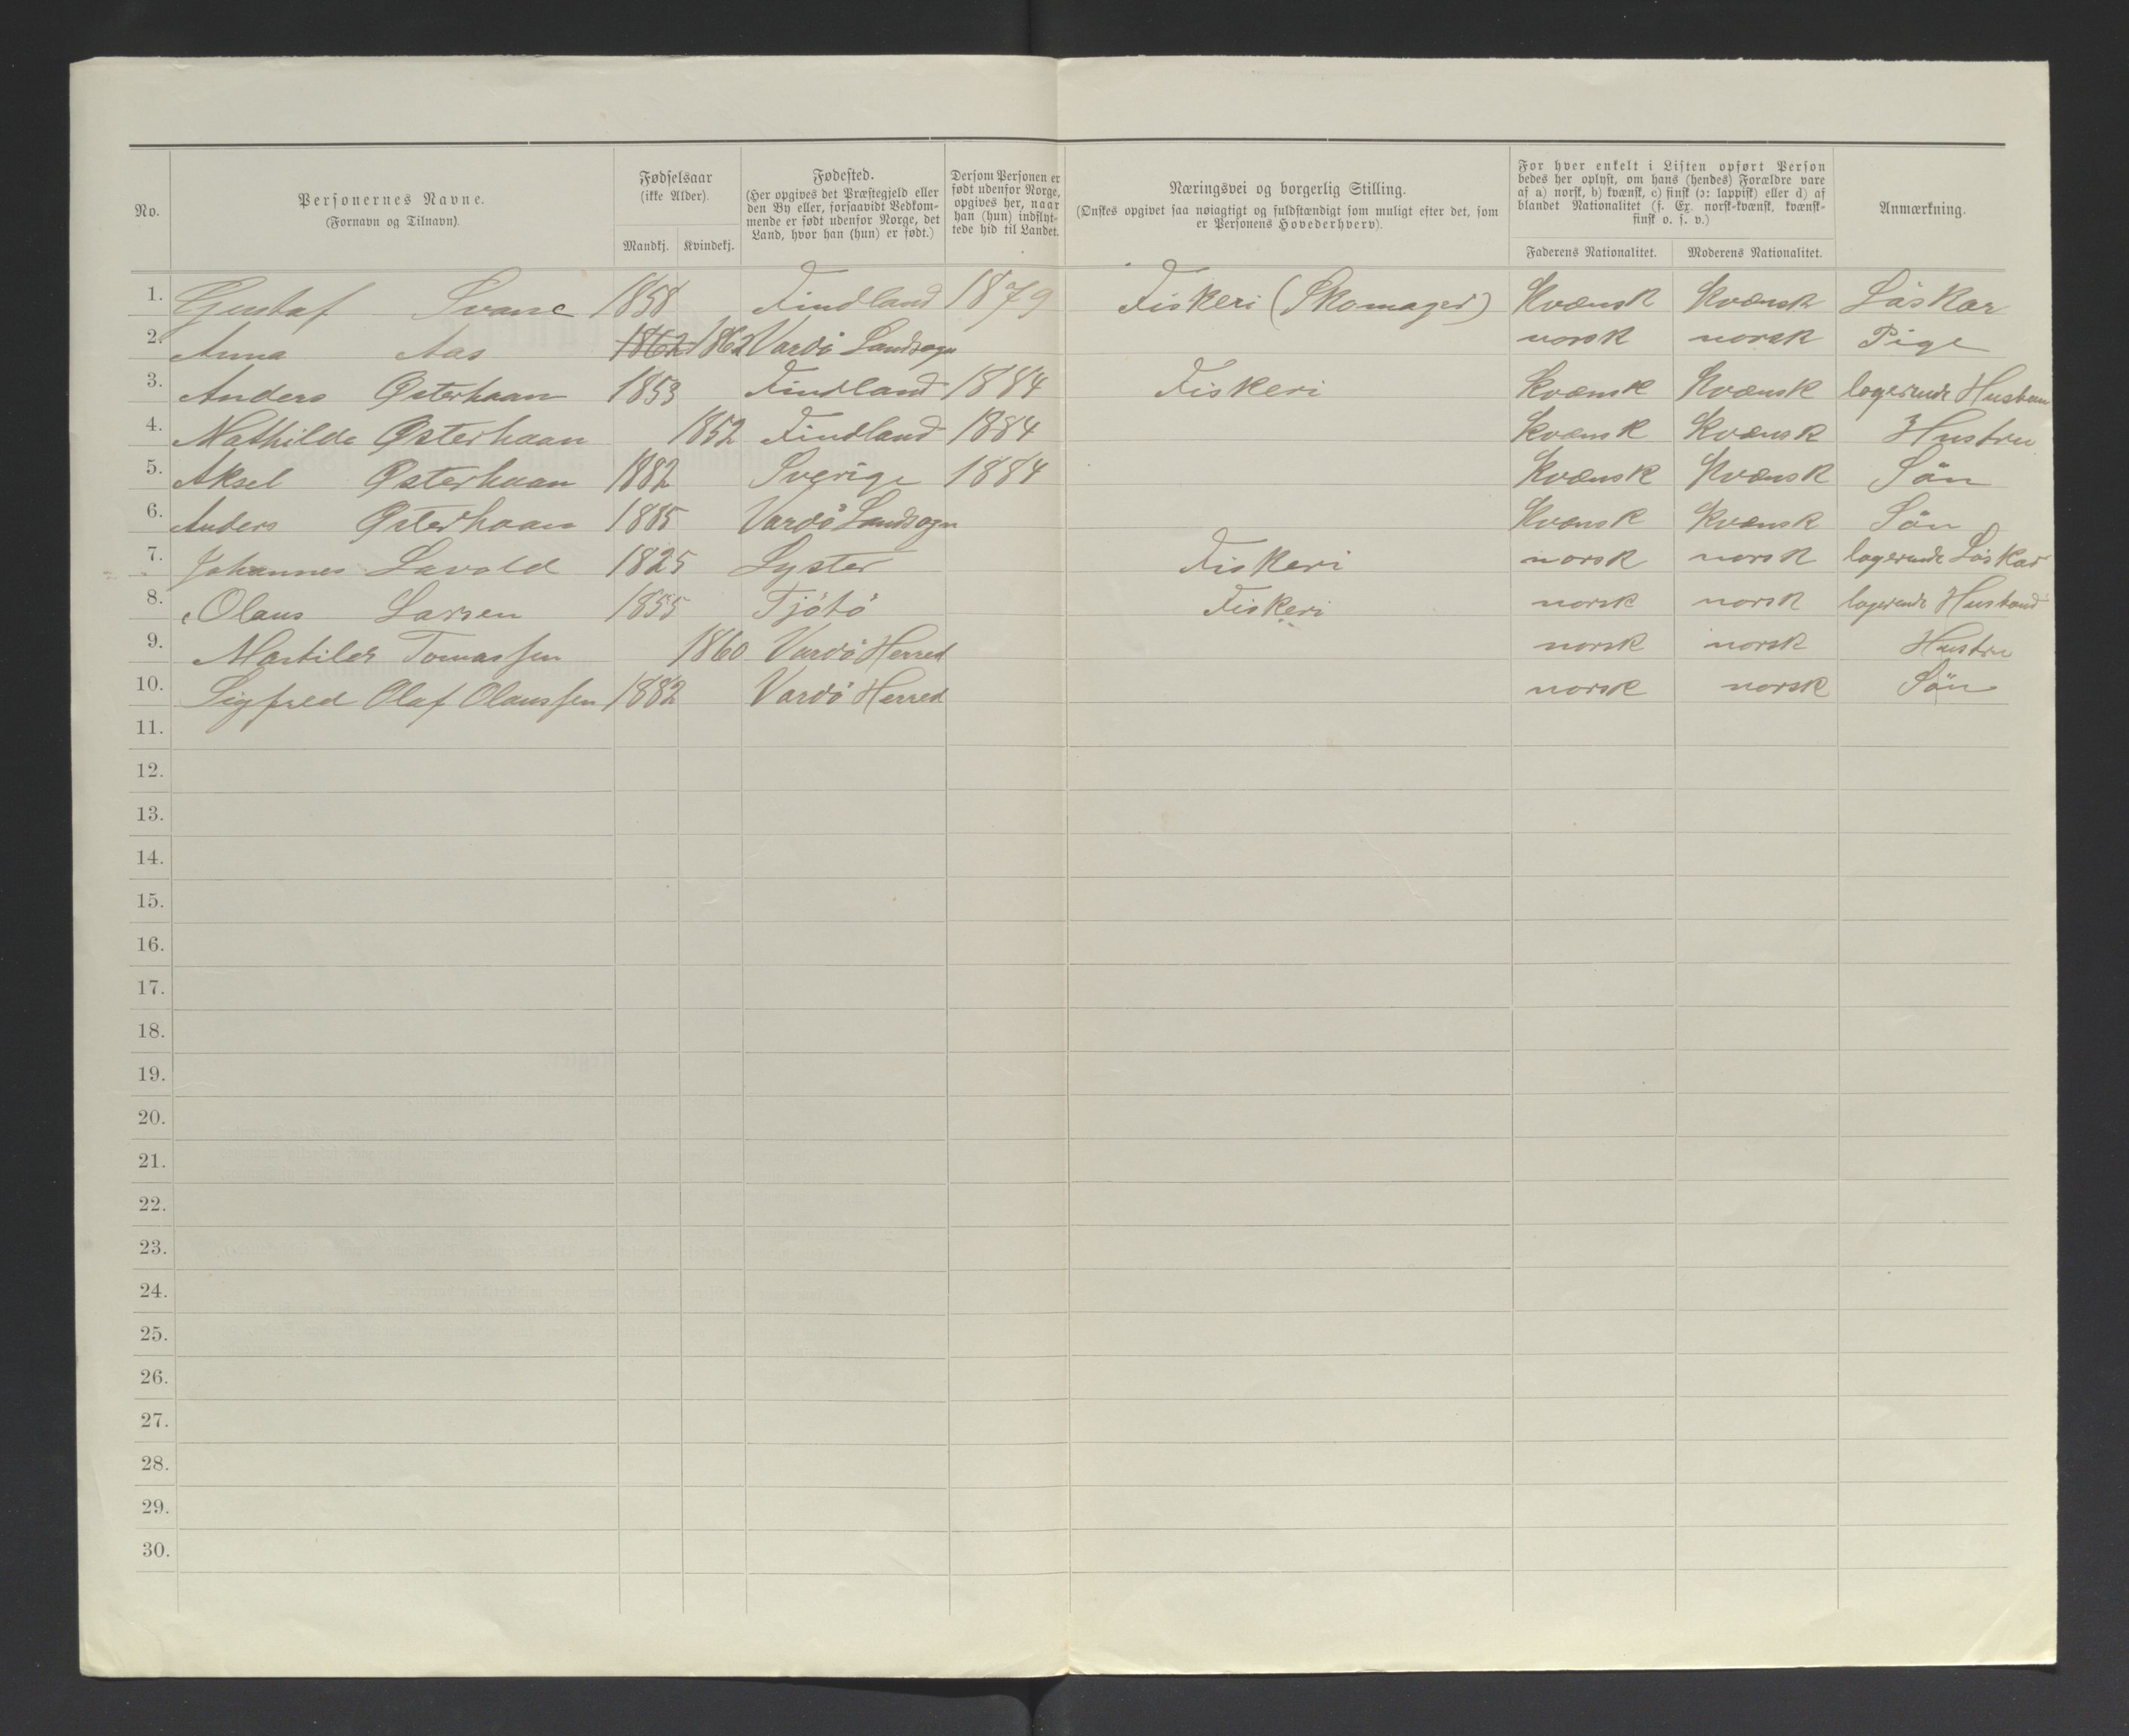 No.
Personernes Navne.
(Fornavn og Tilnavn).
Fødselsaar
(ikke Alder).
Mandkj. Kvindekj.
Fødested.
(Her opgives det Præstegjeld eller
den By eller, forsaavidt Vedkom-
mende er født udenfor Norge, det
Land, hvor han (hun) er født.)
Dersom Personen er
født udenfor Norge,
opgives her, naar
han (hun) indflyt-
tede hid til Landet.
Næringsvei og borgerlig Stilling.
(Ønskes opgivet saa nøiagtigt og fuldstændigt som muligt efter det, som
er Personens Hovederhverv).
For hver enkelt i Listen opført Person
bedes her oplyst, om hans (hendes) Forældre vare
af a) norsk, b) kvænsk, c) finsk (ɔ: lappisk) eller d) af
blandet Nationalitet (f. Ex. norsk-kvænsk, kvænsk-
finsk o. s. v.)
Faderens Nationalitet. Moderens Nationalitet.
Anmærkning.
1. Gustaf Svane 1858 Findland 1879 Fiskeri (Skomager) Kvænsk Kvænsk Löskar
2. Anna Aas 1862 1862 Vardö Landsogn norsk norsk Pige
3. Anders Østerhaan 1853 Findland 1884 Fiskeri Kvænsk Kvænsk logerende
4. Mathilde Østerhaan 1852 Findland 1884 Kvænsk Kvænsk Hustru
5. Aksel Østerhaan 1882 Sverige 1884 Kvænsk Kvænsk Sön
6. Anders Østerhaan 1885 Vardö Landsogn Kvænsk Kvænsk Sön
7. Johannes Lavold 1825 Lyster Fiskeri norsk norsk logerende Löskar
8. Olaus Larsen 1855 Tjötö Fiskeri norsk norsk logerende Husbond
9. Martilde Tomassen 1860 Vardö Herred norsk norsk Hustru
10. Sigfred Olaf Olaussen 1882 Vardö Herred norsk norsk Sön
11.
12.
13.
14.
15.
16.
17.
18.
19.
20.
21.
22.
23.
24.
25.
26.
27.
28.
29.
30.